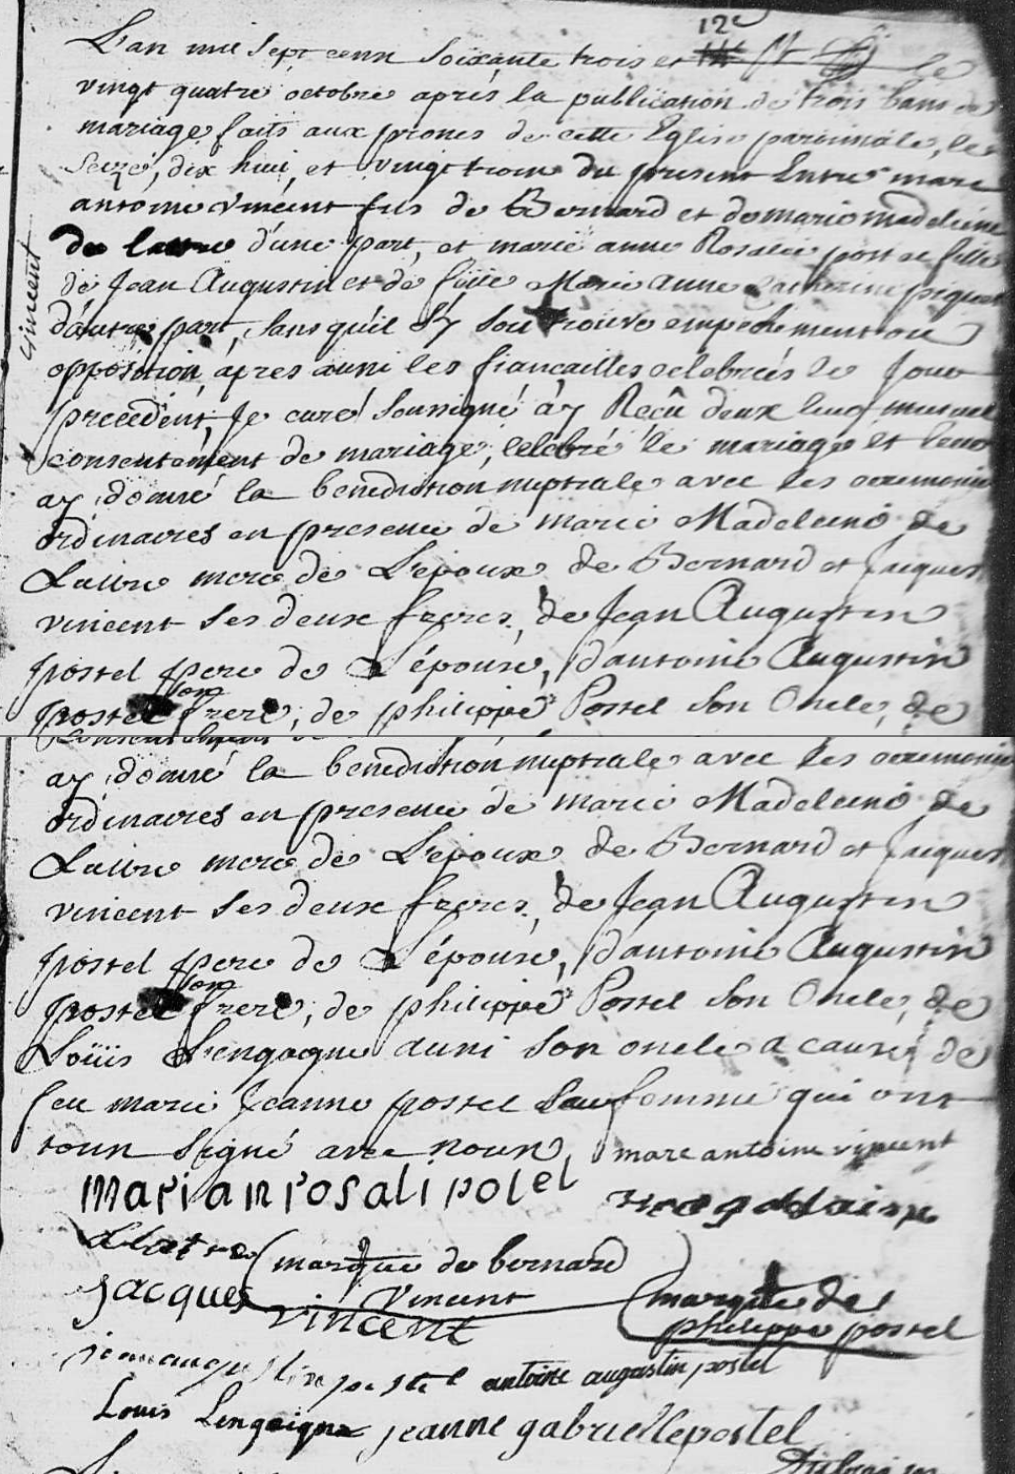 12e
L'an mil sept cent soixante trois et le
vingt quatre octobre apres la publication de trois bans de
mariage faits aux prones de cette Eglise paroissiale, le
seize, dix huit, et vingt trois du present Entre marc
antoine vincent fils de Bernard et de marie madeleine
de lattre d'une part, et marie anne Rosalie postel fille
de Jean Augustin et de feüe Marie anne Catherine piquet
d'autre part, sans qu'il s'y soit trouvé empechement ou
opposition, apres aussi les fiançailles celebrées le jour
precedent, Je curé soussigné ay Reçû deux leur mutuel
consentement de mariage, celebré le mariage et leur
ay donné la benediction nuptiale avec les ceremonies
ordinaires en presence de marie Madeleine de
Lattre mere de L'epoux de Bernard et Jacques
vincent ses deux freres, de Jean Augustin
postel pere de L'épouse, d'antoine Augustin
postel son frere, de philippe Postel son Oncle, de
vincent
ay donné la benediction nuptiale avec les ceremonies
ordinaires en presence de marie Madeleine de
Lattre mere de L'epoux de Bernard et Jacques
vincent ses deux freres, de Jean Augustin
postel pere de L'épouse, d'antoine Augustin
postel son frere, de philippe Postel son Oncle, de
Loüis Lengagne aussi son oncle a cause de
feu marie Jeanne postel sa femme qui ont
tous signé avec nous marc antoine vincent
marianrosali potel
marque de bernard
vincent
jacques vincent
marque de
philippe postel
jeanaugustin postel antoine augustin postel
Louis Lengaigne jeanne gabriellepostel